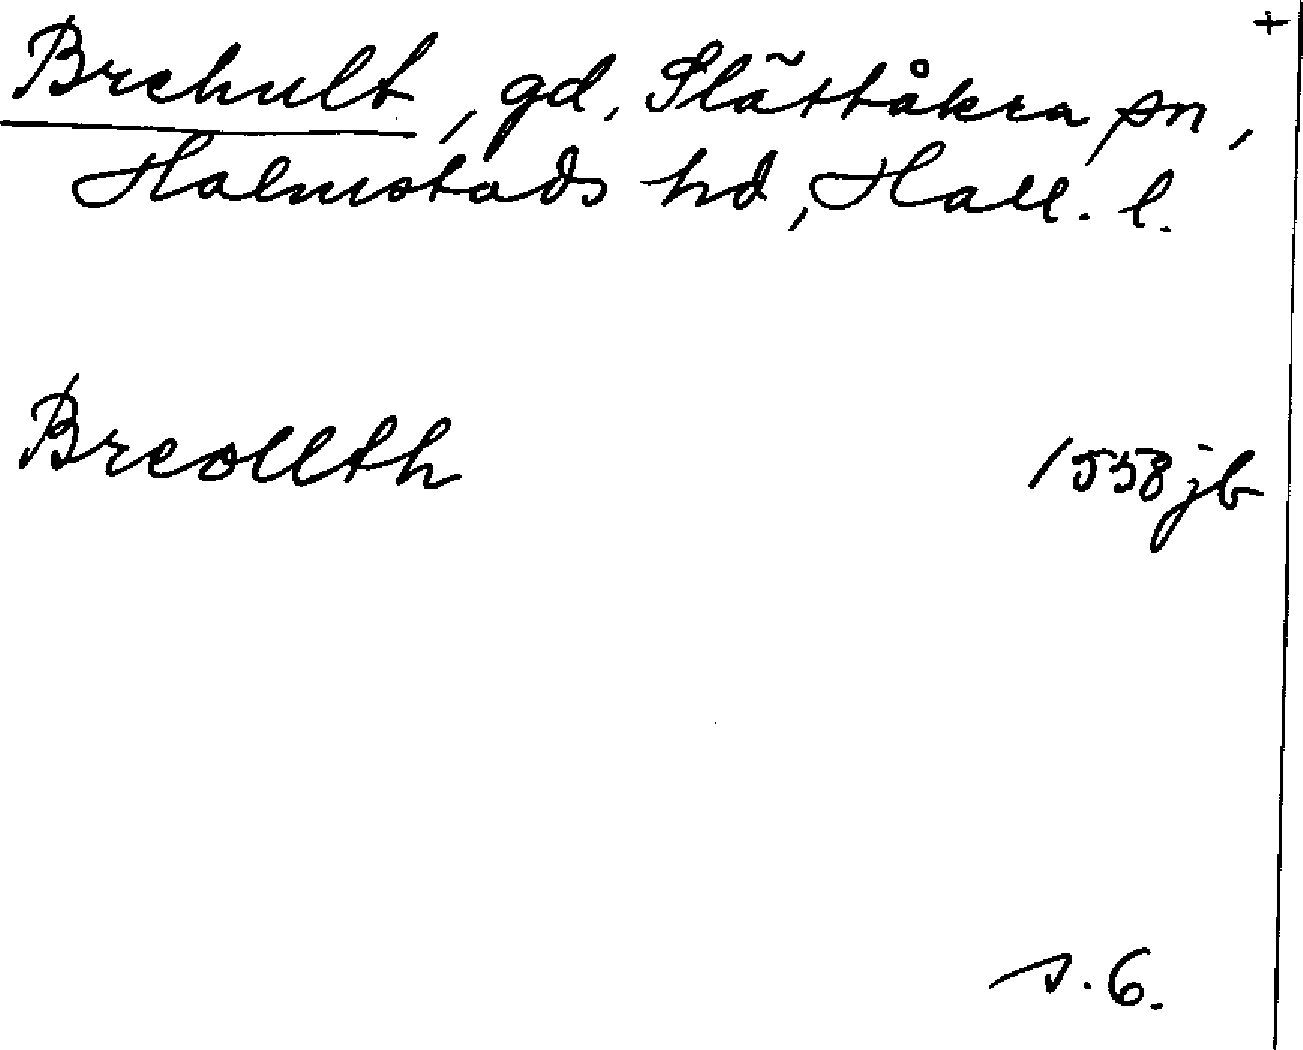 +
Brehult, gd, Slättåkra sn,
Halmstads hd, Hall. l.
Breollth 1558 jb
s. 6.